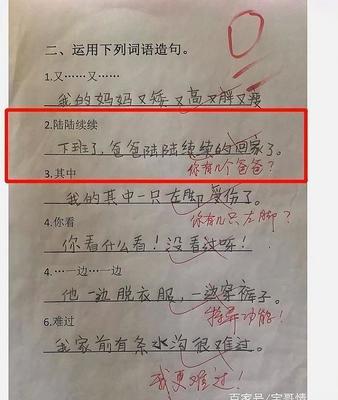 二、运用下列词语造句。
1.又……又……
我的妈妈又矮又高又胖又瘦
2.陆陆续续
下班了,爸爸陆陆续续的回家了。
你有几个爸爸?
3.其中
我的其中一只左脚受伤了。
你有几只左脚?
4.你看
你看什么看!没看过啊!
4.…一边…一边
他一边脱衣服,一边穿裤子。
特异功能!
6.难过
我家前有条水沟很难过。
我更难过!
百家号/宝哥情